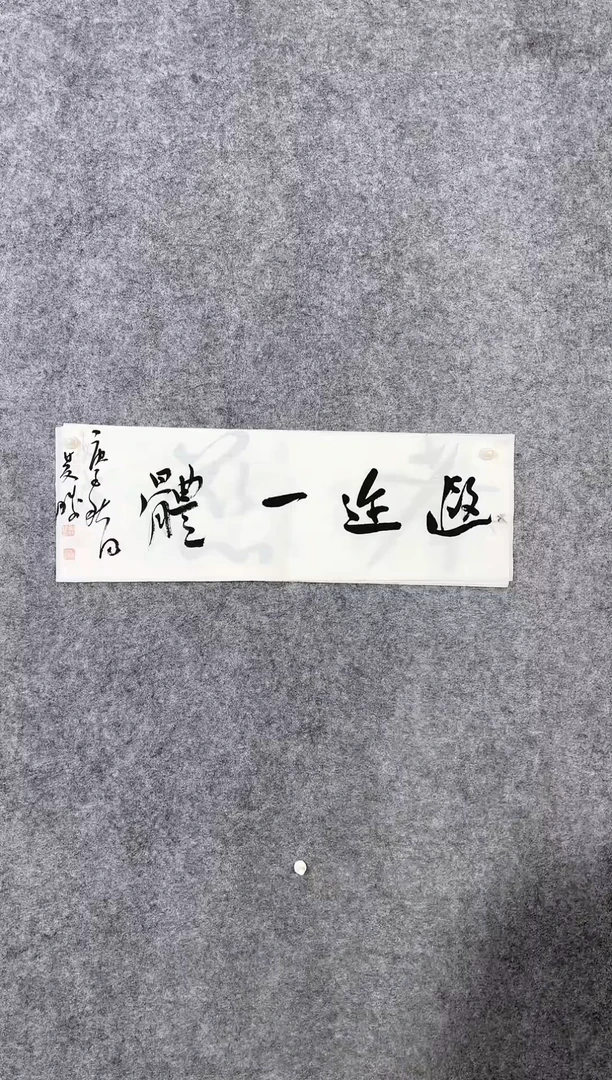 遐迩一體
庚子秋日